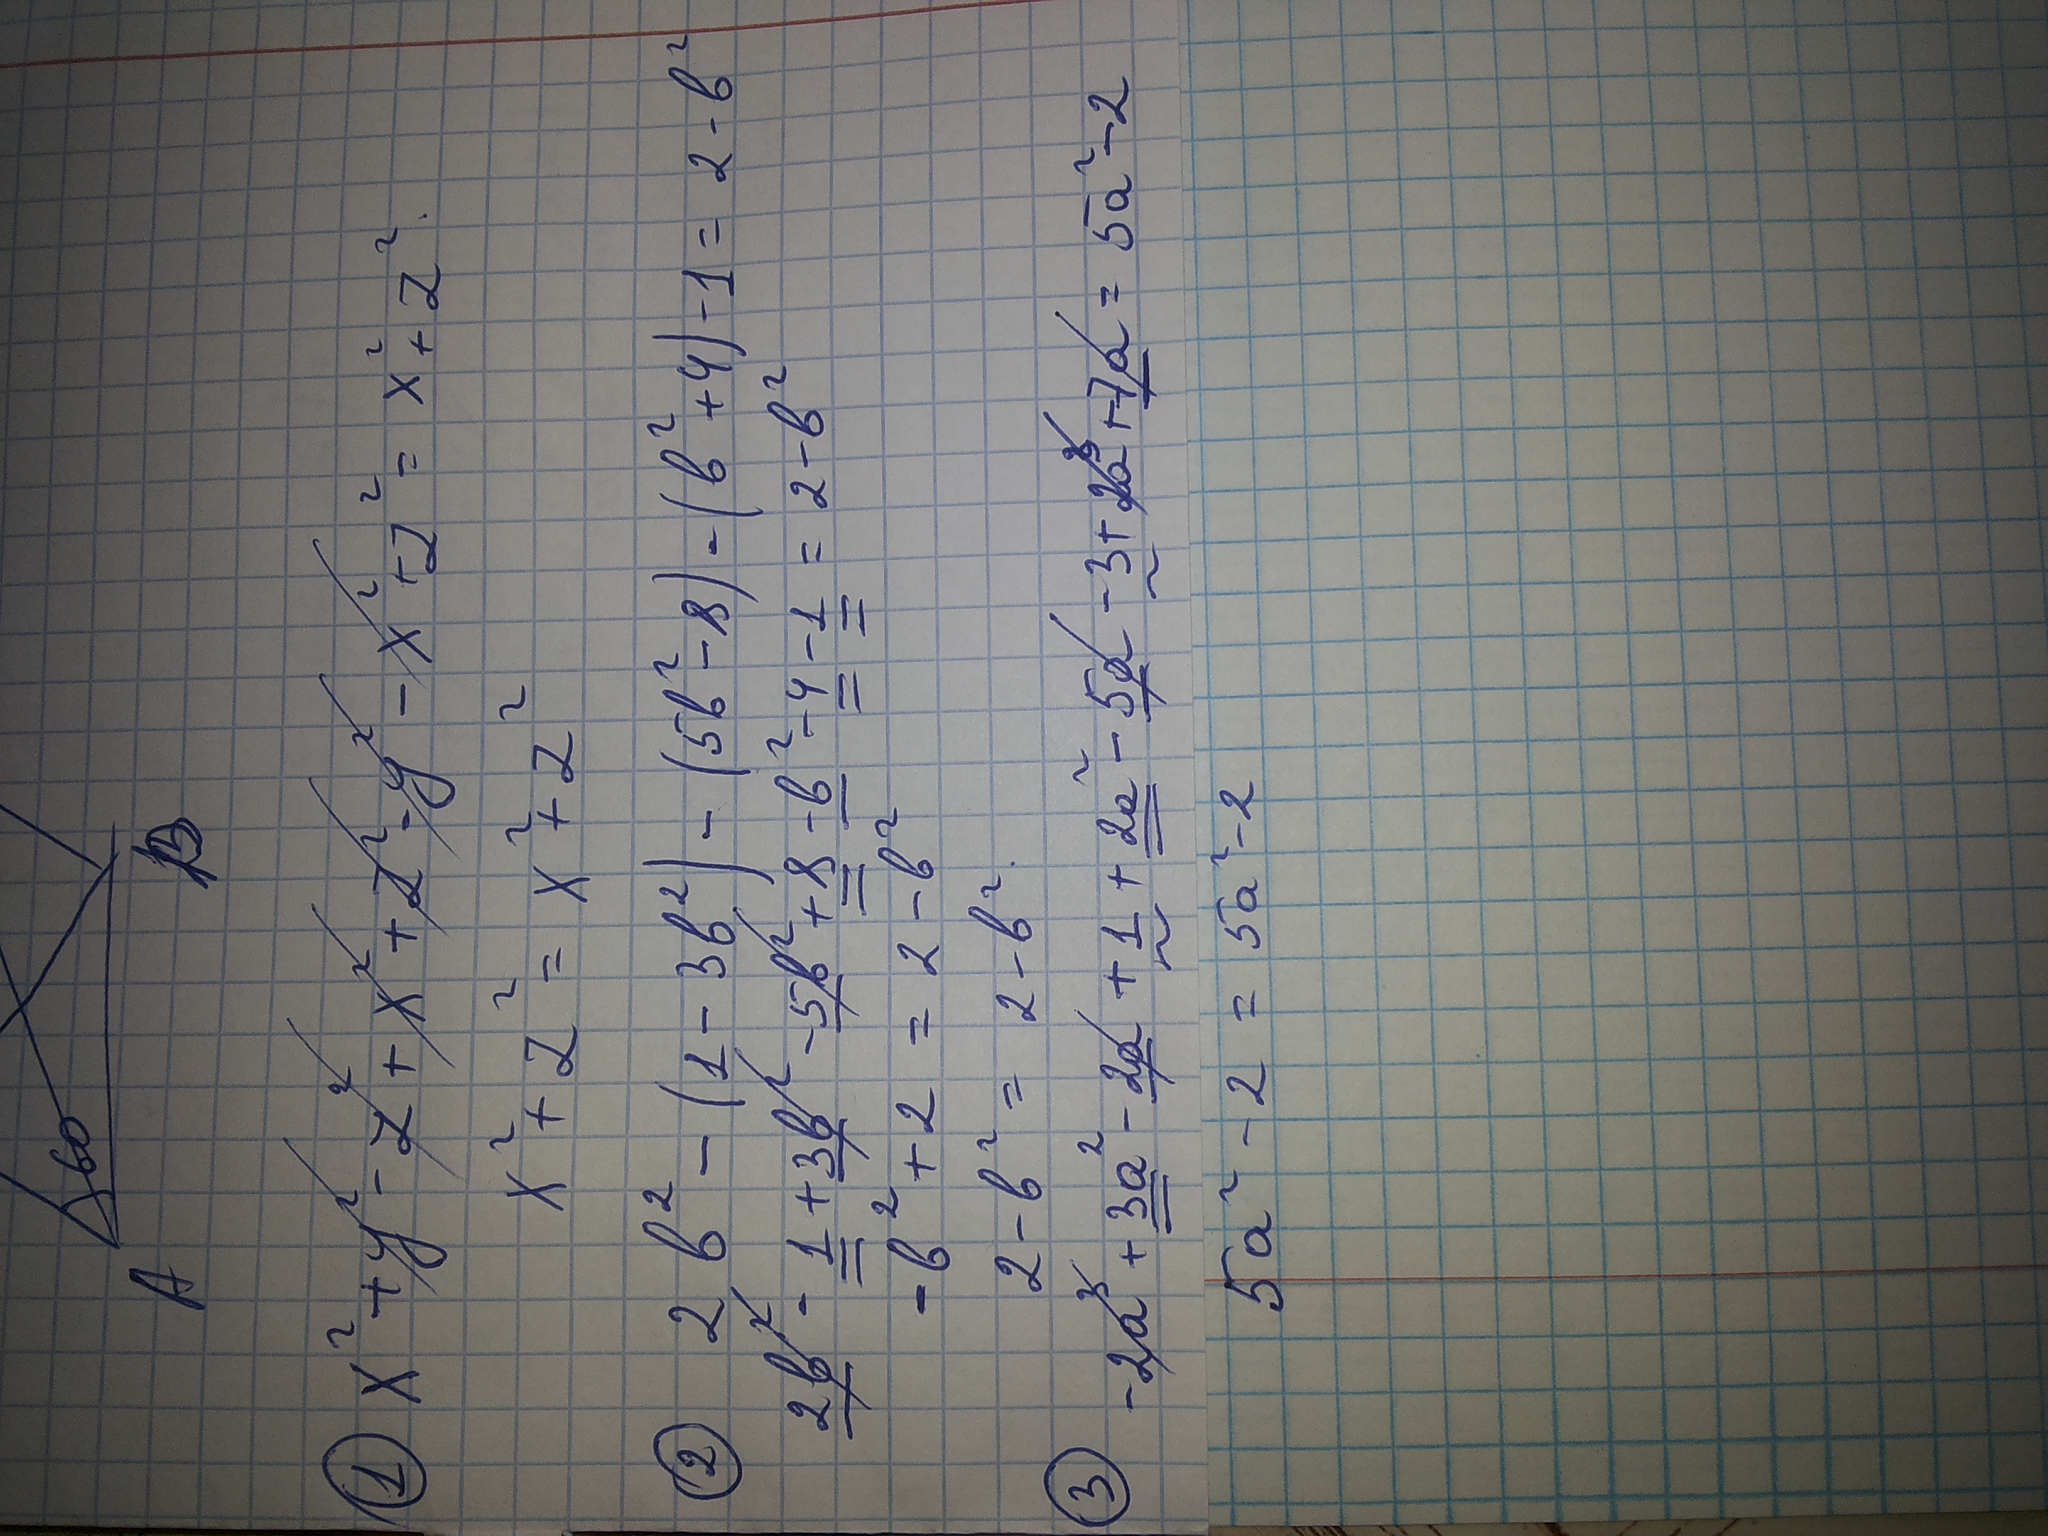 60
A B
① x² + y² - z² + x² + z² - y² - x² + z² = x² + z².
x² + z² = x² + z²
② 2в² - (1 - 3в²) - (5в² - 8) - (в² + 4) - 1 = 2 - в²
2в² - 1 + 3в² - 5в² + 8 - в² - 4 - 1 = 2 - в²
- в² + 2 = 2 - в²
2 - в² = 2 - в².
③ -2a³ + 3a² - 2a + 1 + 2a² - 5a - 3 + 2a³ + 7a = 5a² - 2
5a² - 2 = 5a² - 2